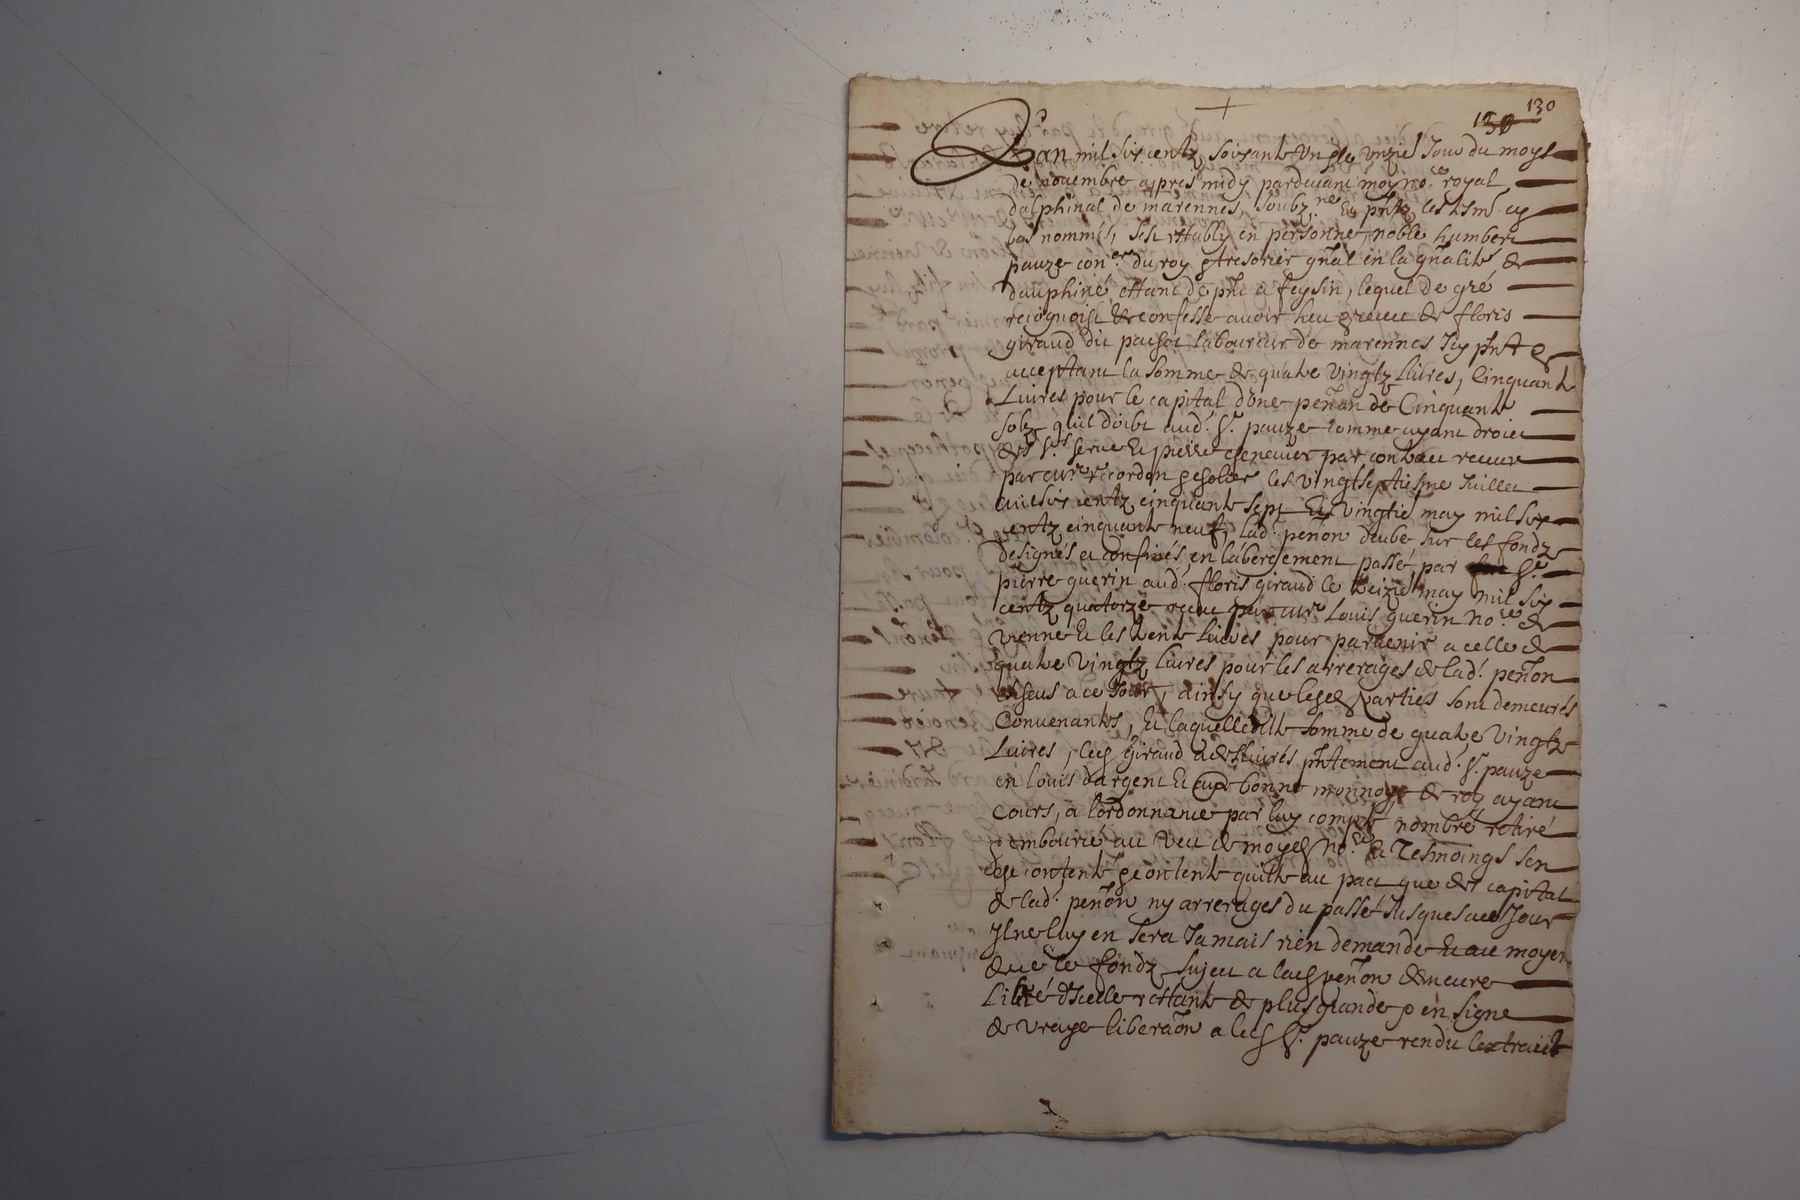 130
130
Lan mil six centz soixante un & le unzie Jour du moys
de novembre apres midy pardevant moy no.re royal
dalphinal de marennes, soubz.ne & pntz les tsm. cy
bas nommés, sest estably en personne, noble humbert
pauze con.er du roy & tresorier gnal en la gnalité de
dauphiné estant de pnt a feysin, lequel de gré
recognoist & confesse avoir heu & receu de floris
giraud dit pachot laboureur de marennes Icy pnt &
acceptant la somme de quatre vingtz livres, Cinquante
Livres pour le capital dune penon de Cinquante
solz quil doibt aud. Sr. pauze comme ayant droict
des Srs. serve & pierre par contract receu
par me recordon & les vingtseptiesme Juillet
mil six centz cinquante sept & vingtie may mil six
centz cinquante neuf, lad. penon deube sur les fondz
designés et confinés en labergement passé par Sr
pierre guerin aud. floris giraud le treizie may mil six
centz quatorze receu par me Louis guerin no.re de
vienne & les trente livres pour parvenir a celle de
quatre vingtz livres pour les arrerages de lad. penon
escheus a ce Jour, ainsy que lesd parties sont demeurés
Convenantes, & laquelleditte somme de quatre vingtz
Livres, led giraud a deslivrés pntement aud. Sr. pauze
en louis dargent & bonne monnoye de roy ayant
cours, a lordonnance par luy compté nombré retiré
& embourcé au veu de moyd no.re & Tesmoings sen
contente & quitte au pact que des capital
de lad. penon ny arrerages du passé Jusques a ce Jour
Il ne luy en sera Jamais rien demande & au moyen
de ce le fondz sujet a lad penon demeure
Libre dIcelle restante de plus grande & en signe
de vraye liberaon a led Sr. pauze rendu lextraict